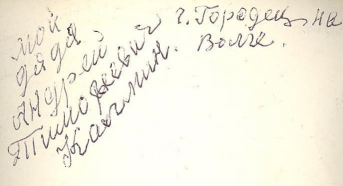 мой
дядя
Андрей
Тимофеевич
Кахилин.
г. Городец на
Волге.